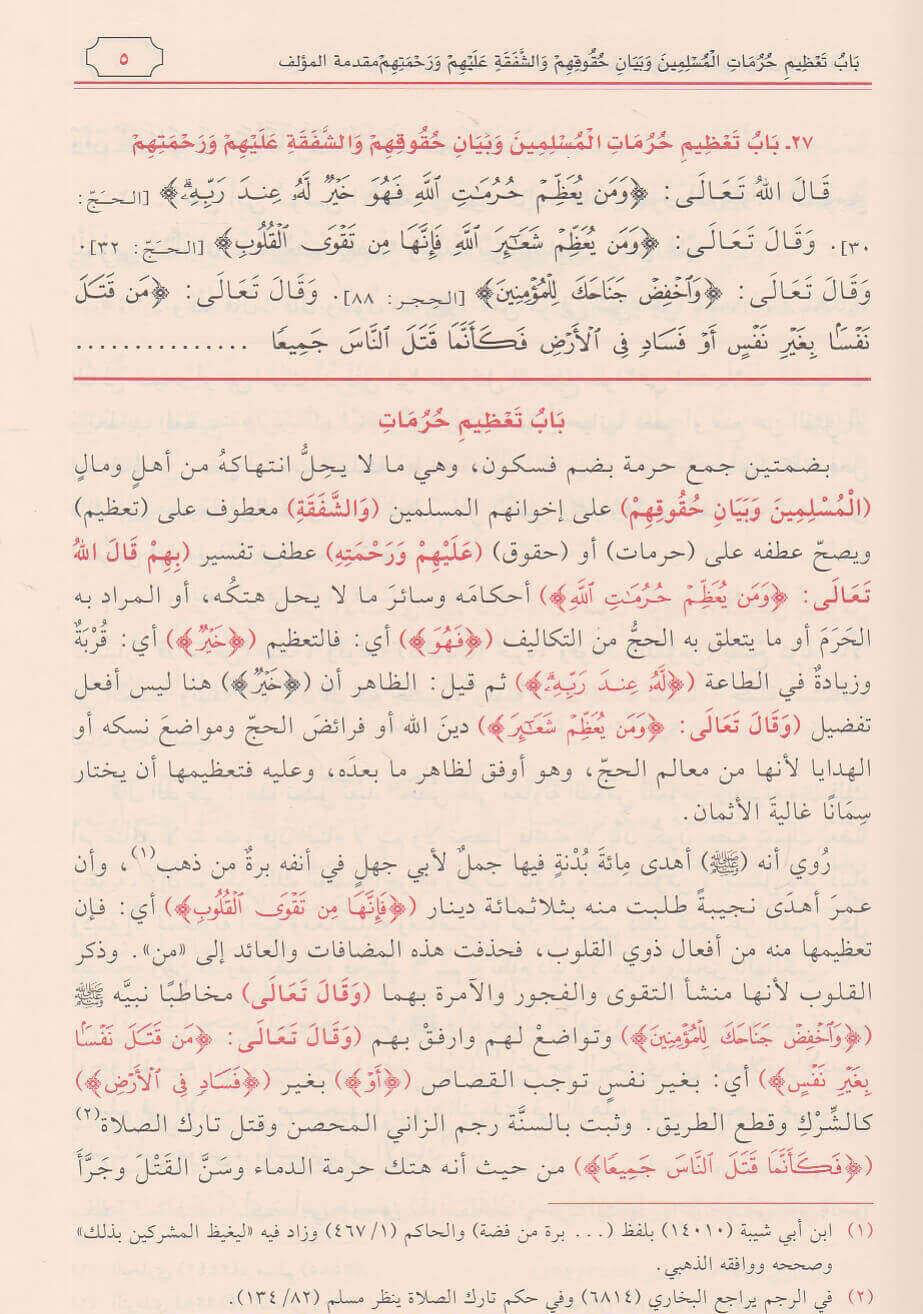 بَابُ تَعْظِيمِ حُرُمَاتِ الْمُسْلِمِينَ وَبَيَانِ حُقُوقِهِمْ وَالشَّفَقَةِ عَلَيْهِمْ وَرَحْمَتِهِمْمقدمة المؤلف
٥
٢٧ـ بَابُ تَعْظِيمِ حُرُمَاتِ المُسْلِمِينَ وَبَيَانِ حُقُوقِهِمْ وَالشَّفَقَةِ عَلَيْهِمْ وَرَحْمَتِهِمْ
قَالَ اللهُ تَعَالَى: ﴿وَمَن يُعَظِّمْ حُرُمَٰتِ ٱللَّهِ فَهُوَ خَيْرٌ لَّهُ عِندَ رَبِّهِۦۗ﴾ [الحَجّ:
٣٠]. وَقَالَ تَعَالَى: ﴿وَمَن يُعَظِّمْ شَعَٰٓئِرَ ٱللَّهِ فَإِنَّهَا مِن تَقْوَى ٱلْقُلُوبِ﴾ [الحَجّ: ٣٢].
وَقَالَ تَعَالَى: ﴿وَٱخْفِضْ جَنَاحَكَ لِلْمُؤْمِنِينَ﴾ [الحِجر: ٨٨]. وَقَالَ تَعَالَى: ﴿مَن قَتَلَ
نَفْسًا بِغَيْرِ نَفْسٍ أَوْ فَسَادٍ فِى ٱلْأَرْضِ فَكَأَنَّمَا قَتَلَ ٱلنَّاسَ جَمِيعًا ...............
بَابُ تَعْظِيمِ حُرُمَاتِ
بضمتين جمع حرمة بضم فسكون، وهي ما لا يحِلُّ انتهاكهُ من أهلٍ ومالٍ
(الْمُسْلِمِينَ وَبَيَانِ حُقُوقِهِمْ) على إخوانهم المسلمين (وَالشَّفَقَةِ) معطوف على (تعظيم)
ويصحّ عطفه على (حرمات) أو (حقوق) (عَلَيْهِمْ وَرَحْمَتِهِ) عطف تفسير (بِهِمْ قَالَ اللهُ
تَعَالَى: ﴿وَمَن يُعَظِّمْ حُرُمَٰتِ ٱللَّهِ﴾) أحكامَه وسائرَ ما لا يحل هتكُه، أو المراد به
الحَرَمَ أو ما يتعلق به الحجُّ من التكاليف (﴿فَهُوَ﴾) أي: فالتعظيم (﴿خَيْرٌ﴾) أي: قُرْبَةٌ
وزيادةٌ في الطاعة (﴿لَّهُ عِندَ رَبِّهِۦۗ﴾) ثم قيل: الظاهر أن (﴿خَيْرٌ﴾) هنا ليس أفعل
تفضيل (وَقَالَ تَعَالَى: ﴿وَمَن يُعَظِّمْ شَعَٰٓئِرَ﴾) دينَ الله أو فرائضَ الحجّ ومواضعَ نسكه أو
الهدايا لأنها من معالم الحجّ، وهو أوفق لظاهر ما بعدَه، وعليه فتعظيمها أن يختار
سِمَانًا غاليةَ الأثمان.
رُوي أنه (ﷺ) أهدى مِائةَ بُدْنةٍ فيها جملٌ لأبي جهلٍ في أنفه برةٌ من ذهب(١)، وأن
عمرَ أهدَى نجيبةً طلبت منه بثلاثمائة دينار (﴿فَإِنَّهَا مِن تَقْوَى ٱلْقُلُوبِ﴾) أي: فإن
تعظيمها منه من أفعال ذوي القلوب، فحذفت هذه المضافات والعائد إلى «من». وذكر
القلوب لأنها منشأ التقوى والفجور والآمرة بهما (وَقَالَ تَعَالَى) مخاطبًا نبيَّه ﷺ
(﴿وَٱخْفِضْ جَنَاحَكَ لِلْمُؤْمِنِينَ﴾) وتواضعْ لهم وارفقْ بهم (وَقَالَ تَعَالَى: ﴿مَن قَتَلَ نَفْسًا
بِغَيْرِ نَفْسٍ﴾) أي: بغير نفسٍ توجب القصاص (﴿أَوْ﴾) بغير (﴿فَسَادٍ فِى ٱلْأَرْضِ﴾)
كالشِّرْكِ وقطع الطريق. وثبت بالسنَّة رجم الزاني المحصن وقتل تارك الصلاة(٢)
(﴿فَكَأَنَّمَا قَتَلَ ٱلنَّاسَ جَمِيعًا﴾) من حيث أنه هتك حرمة الدماء وسَنَّ القَتْلَ وجَرَّأَ
(١) ابن أبي شيبة (١٤٠١٠) بلفظ (... برة من فضة) والحاكم (١/ ٤٦٧) وزاد فيه «ليغيظ المشركين بذلك»
وصححه ووافقه الذهبي.
(٢) في الرجم يراجع البخاري (٦٨١٤) وفي حكم تارك الصلاة ينظر مسلم (٨٢/ ١٣٤).